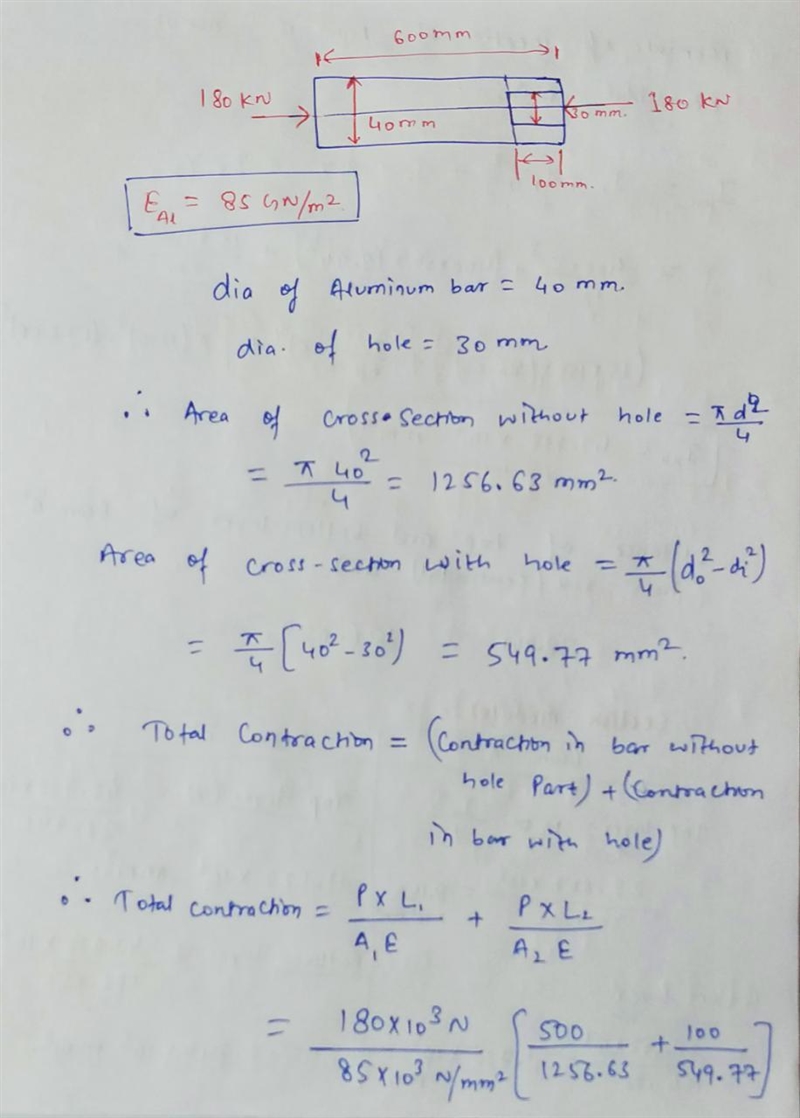 600mm
180 KN
40mm
30 mm.
180 KN
100mm.
E_Al = 85 GN/m2
dia of Aluminum bar = 40 mm.
dia. of hole = 30 mm
∴ Area of cross-section without hole = π d²/4
= π 40²/4 = 1256.63 mm².
Area of cross-section with hole = π/4 (do² - di²)
= π/4 [40² - 30²) = 549.77 mm².
∴ Total Contraction = (Contraction in bar without
hole Part) + (Contraction
in bar with hole)
∴ Total contraction = P x L₁ / A₁ E + P x L₂ / A₂ E
= 180x10³ N / 85x10³ N/mm² [500 / 1256.63 + 100 / 549.77]